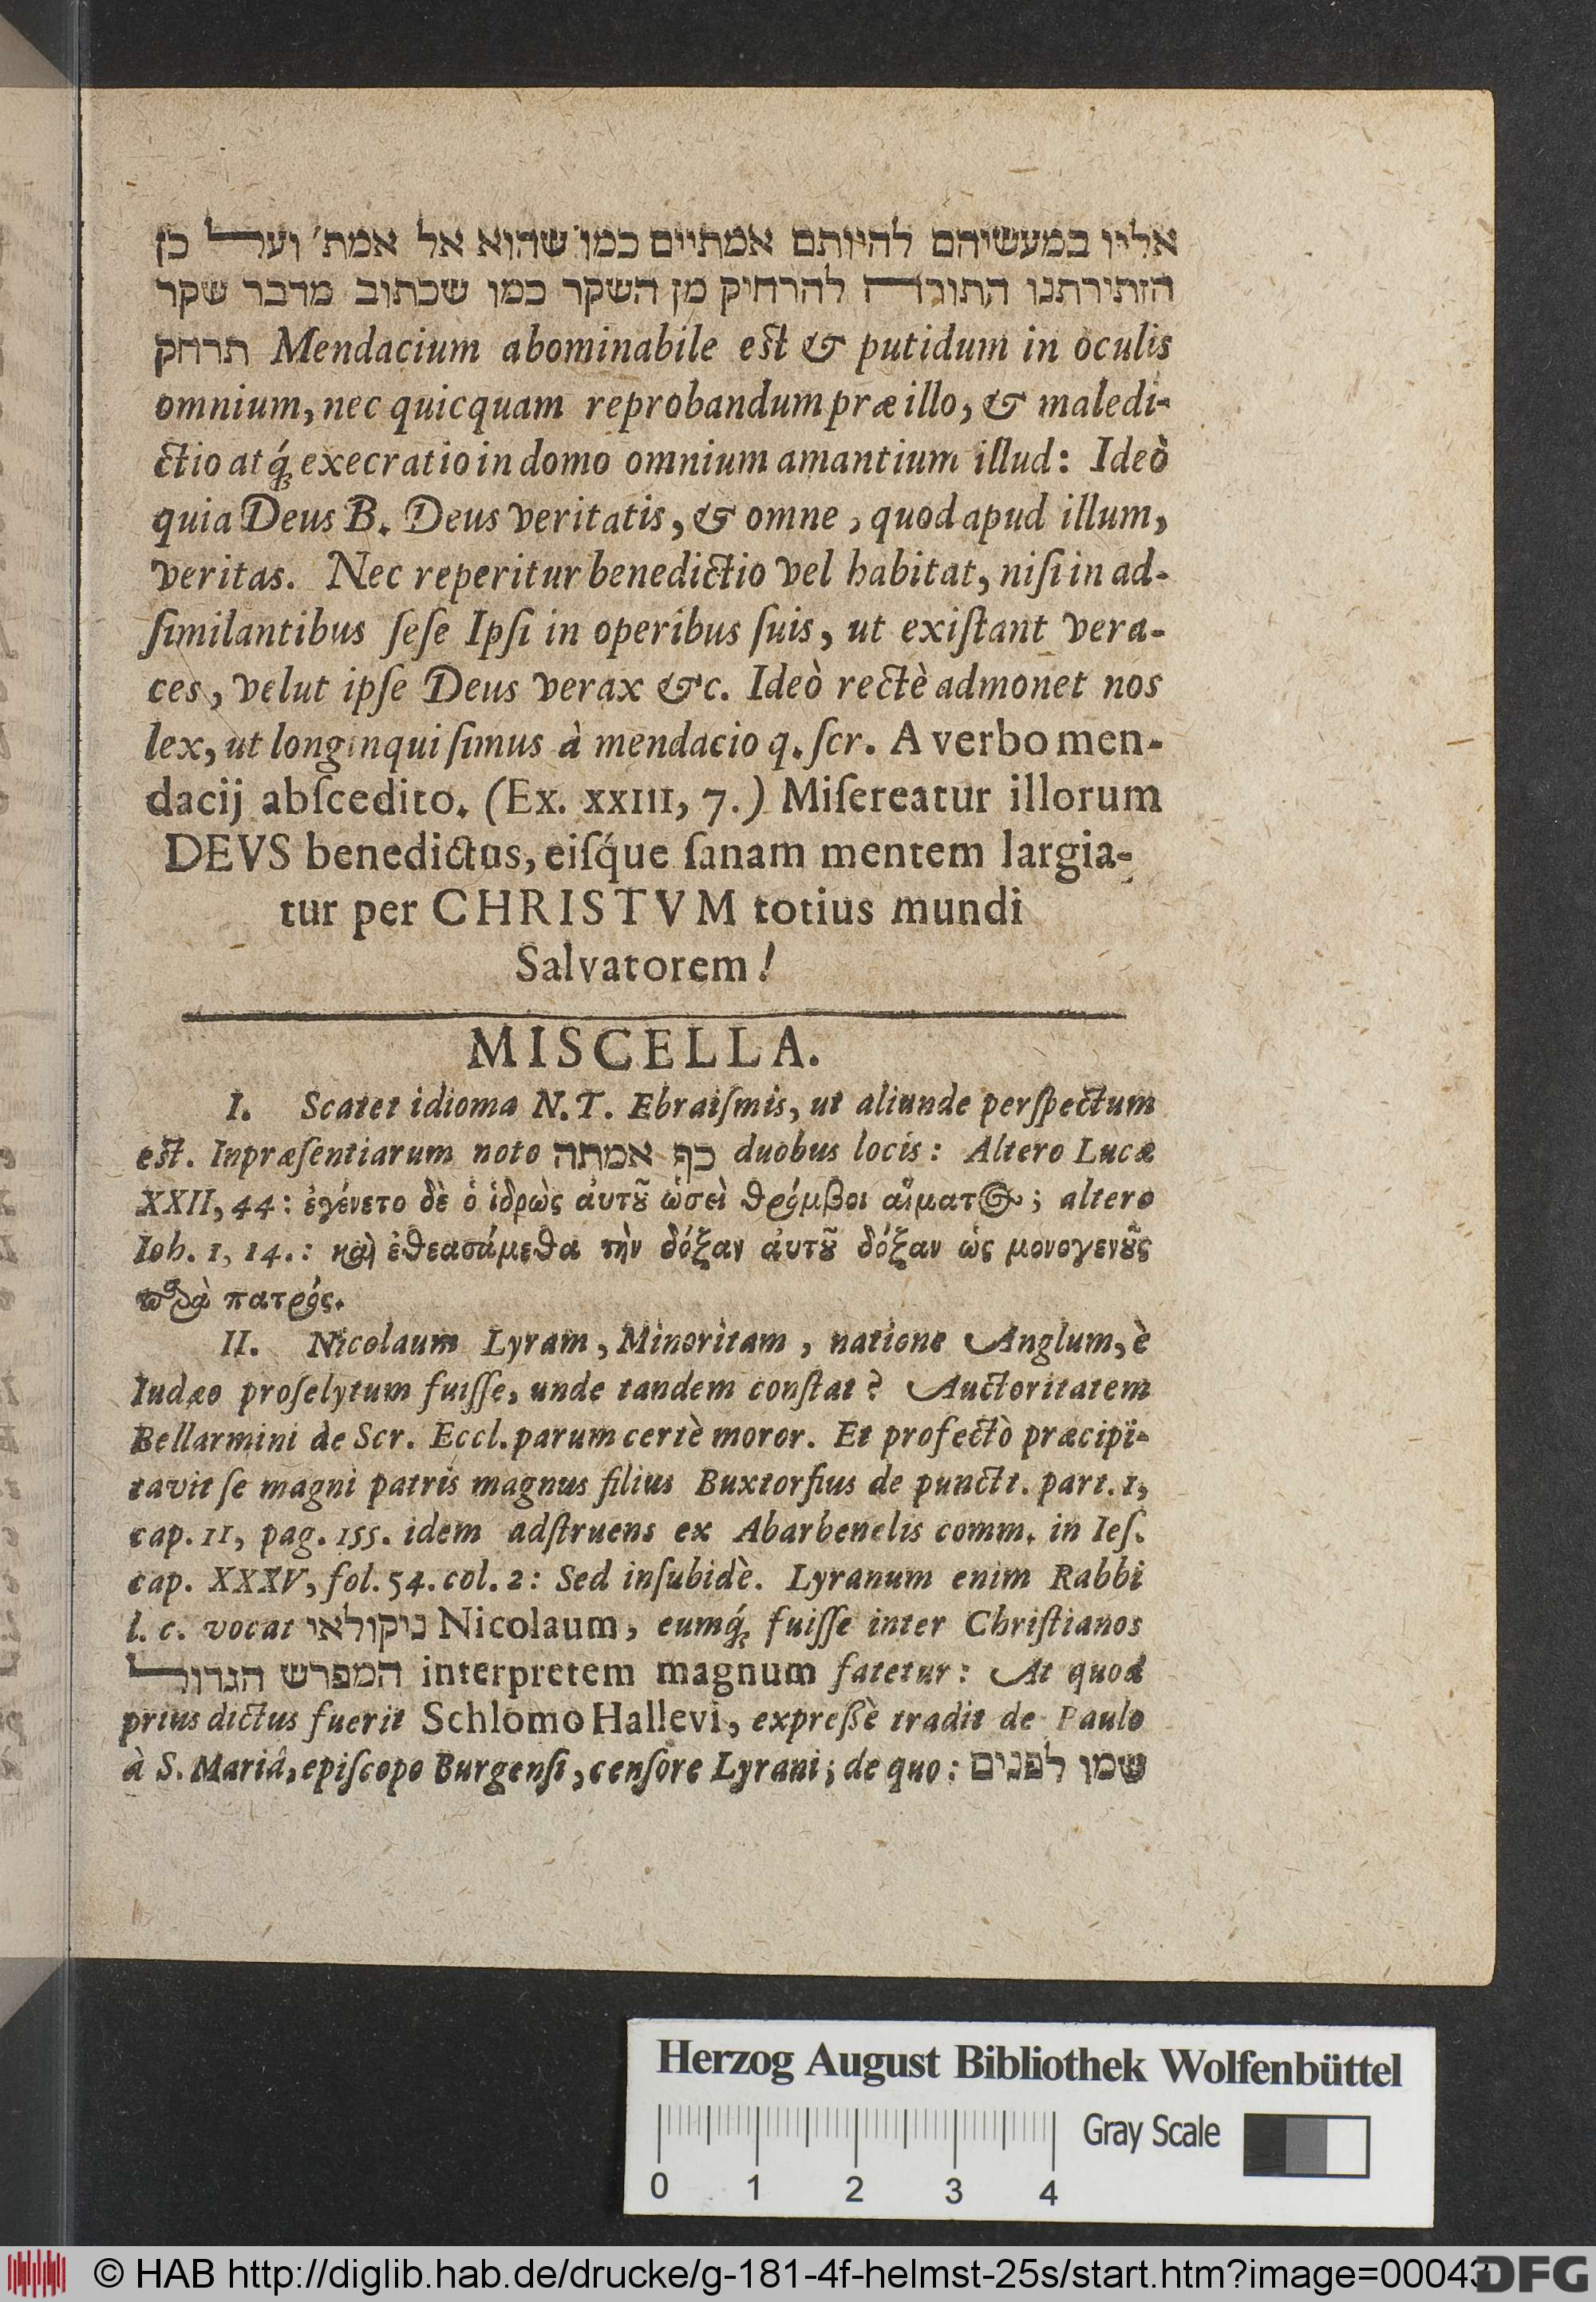 אליו במעשיהם להיותם אמתיים כמו שהוא אל אמת׳ ועל כן
הזהירתנו התורה להרחיק מן השקר כמו שכתוב מדבר שקר
תרחק Mendacium abominabile est & putidum in oculis
omnium, nec quicquam reprobandum præ illo, & maledi-
ctio atq́; execratio in domo omnium amantium illud: Ideò
quia Deus B. Deus veritatis, & omne, quod apud illum,
veritas. Nec reperitur benedictio vel habitat, niſi in ad-
ſimilantibus ſeſe Ipſi in operibus ſuis, ut exiſtant vera-
ces, velut ipſe Deus verax &c. Ideò rectè admonet nos
lex, ut longinqui ſimus à mendacio q. ſcr. A verbo men-
dacij abſcedito. (Ex. XXIII, 7.) Miſereatur illorum
DEVS benedictus, eiſq́ue ſanam mentem largia-
tur per CHRISTVM totius mundi
Salvatorem!
MISCELLA.
I. Scatet idioma N. T. Ebraiſmis, ut aliunde perſpectum
est. Inpræſentiarum noto כף אמתה duobus locis: Altero Lucæ
XXII, 44: ἐγένετο δὲ ὁ ἱδρὼς ἀυτοῦ ὡσεὶ θρόμβοι αἵματος; altero
Ioh. 1, 14.: καὶ ἐθεασάμεθα τὴν δόξαν ἀυτοῦ δόξαν ὡς μονογενοῦς
παρὰ πατρός.
II. Nicolaum Lyram, Minoritam, natione Anglum, è
Iudæo proſelytum fuiſſe, unde tandem conſtat? Auctoritatem
Bellarmini de Scr. Eccl. parum certè moror. Et profectò præcipi-
tavit ſe magni patris magnus filius Buxtorfius de punctt. part. 1,
cap. 11, pag. 155. idem adſtruens ex Abarbenelis comm. in Ieſ.
cap. XXXV, fol. 54. col. 2: Sed inſubidè. Lyranum enim Rabbi
l. c. vocat ניקולאו Nicolaum, eumq́; fuiſſe inter Chriſtianos
המפרש הגדול interpretem magnum fatetur: At quod
prius dictus fuerit Schlomo Hallevi, expreſsè tradit de Paulo
à S. Mariâ, epiſcopo Burgenſi, cenſore Lyrani; de quo: שמו לפנים
Herzog August Bibliothek Wolfenbüttel
0 1 2 3 4 Gray Scale
© HAB http://diglib.hab.de/drucke/g-181-4f-helmst-25s/start.htm?image=00043
DFG